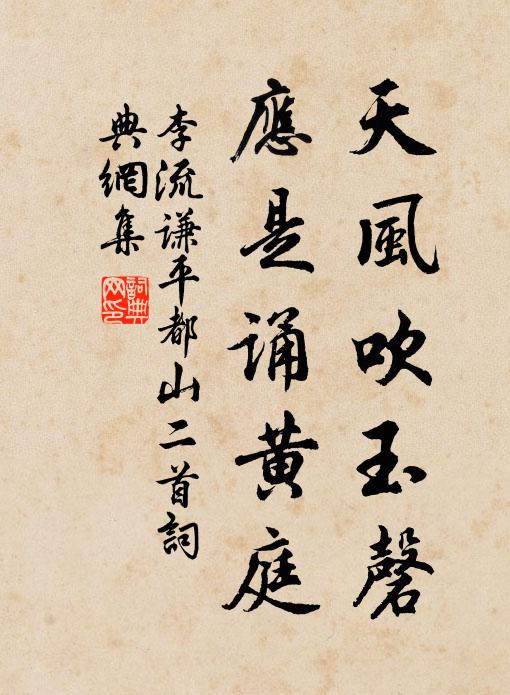 天風吹玉磬
應是誦黄庭
李流谦平都山二首詞
典網集
詞典网印